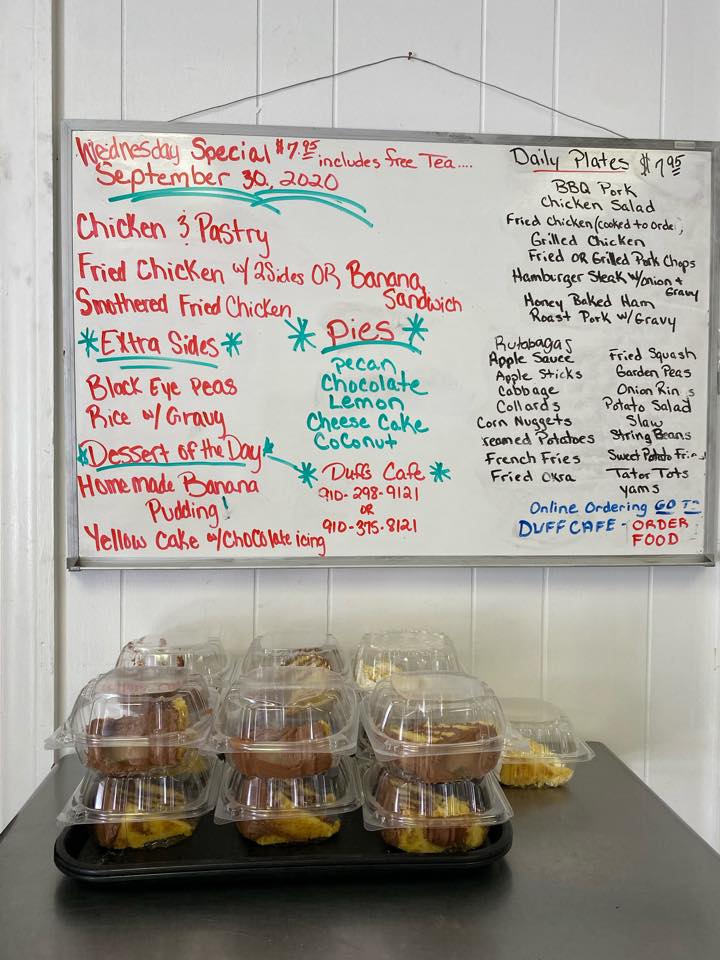 Wednesday Special $7.95 includes free Tea....
September 30, 2020
Chicken & Pastry
Fried Chicken w/ 2 Sides OR Banana Sandwich
Smothered Fried Chicken
*Extra Sides*
Black Eye Peas
Rice w/ Gravy
*Dessert of the Day*
Homemade Banana
Pudding!
Yellow Cake w/Chocolate icing
*Pies*
Pecan
Chocolate
Lemon
Cheese Cake
Coconut
*Duffs Cafe*
910-298-9121
OR
910-375-8121
Daily Plates $7.95
BBQ Pork
Chicken Salad
Fried Chicken (cooked to order)
Grilled Chicken
Fried OR Grilled Pork Chops
Hamburger Steak w/onion +
Gravy
Honey Baked Ham
Roast Pork w/ Gravy
Rutabagas
Apple Sauce
Apple Sticks
Cabbage
Collards
Corn Nuggets
Creamed Potatoes
French Fries
Fried Okra
Fried Squash
Garden Peas
Onion Rings
Potato Salad
Slaw
String Beans
Sweet Potato Fries
Tator Tots
yams
Online Ordering GO TO
DUFFCAFE - ORDER
FOOD